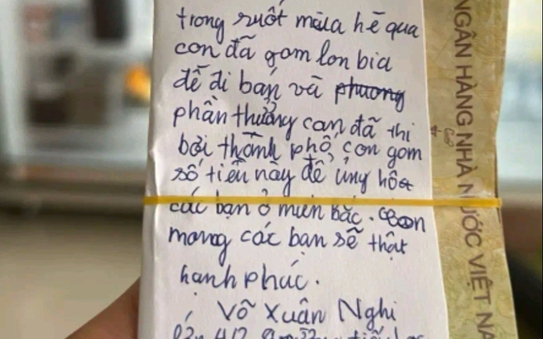 trong suốt mùa hè qua
con đã gom lon bia
để đi bán và phương
phần thưởng con đã thi
bơi thành phố, con gom
số tiền này để ủng hộ
các bạn ở miền bắc. Con
mong các bạn sẽ thật
hạnh phúc.
Võ Xuân Nghi
NGÂN HÀNG NHÀ NƯỚC VIỆT NA